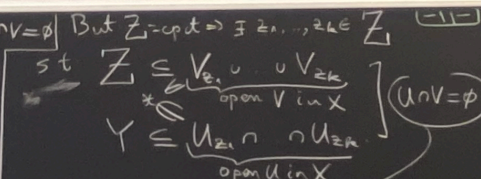 ∩V=∅ But Z-cpct ⇒ ∃ z₁, ..., z_k ∈ Z
st Z ⊆ V_{z₁} ∪ .. ∪ V_{z_k}
open V in X
U∩V=∅
Y ⊆ U_{z₁} ∩ ∩ U_{z_k}
open U in X